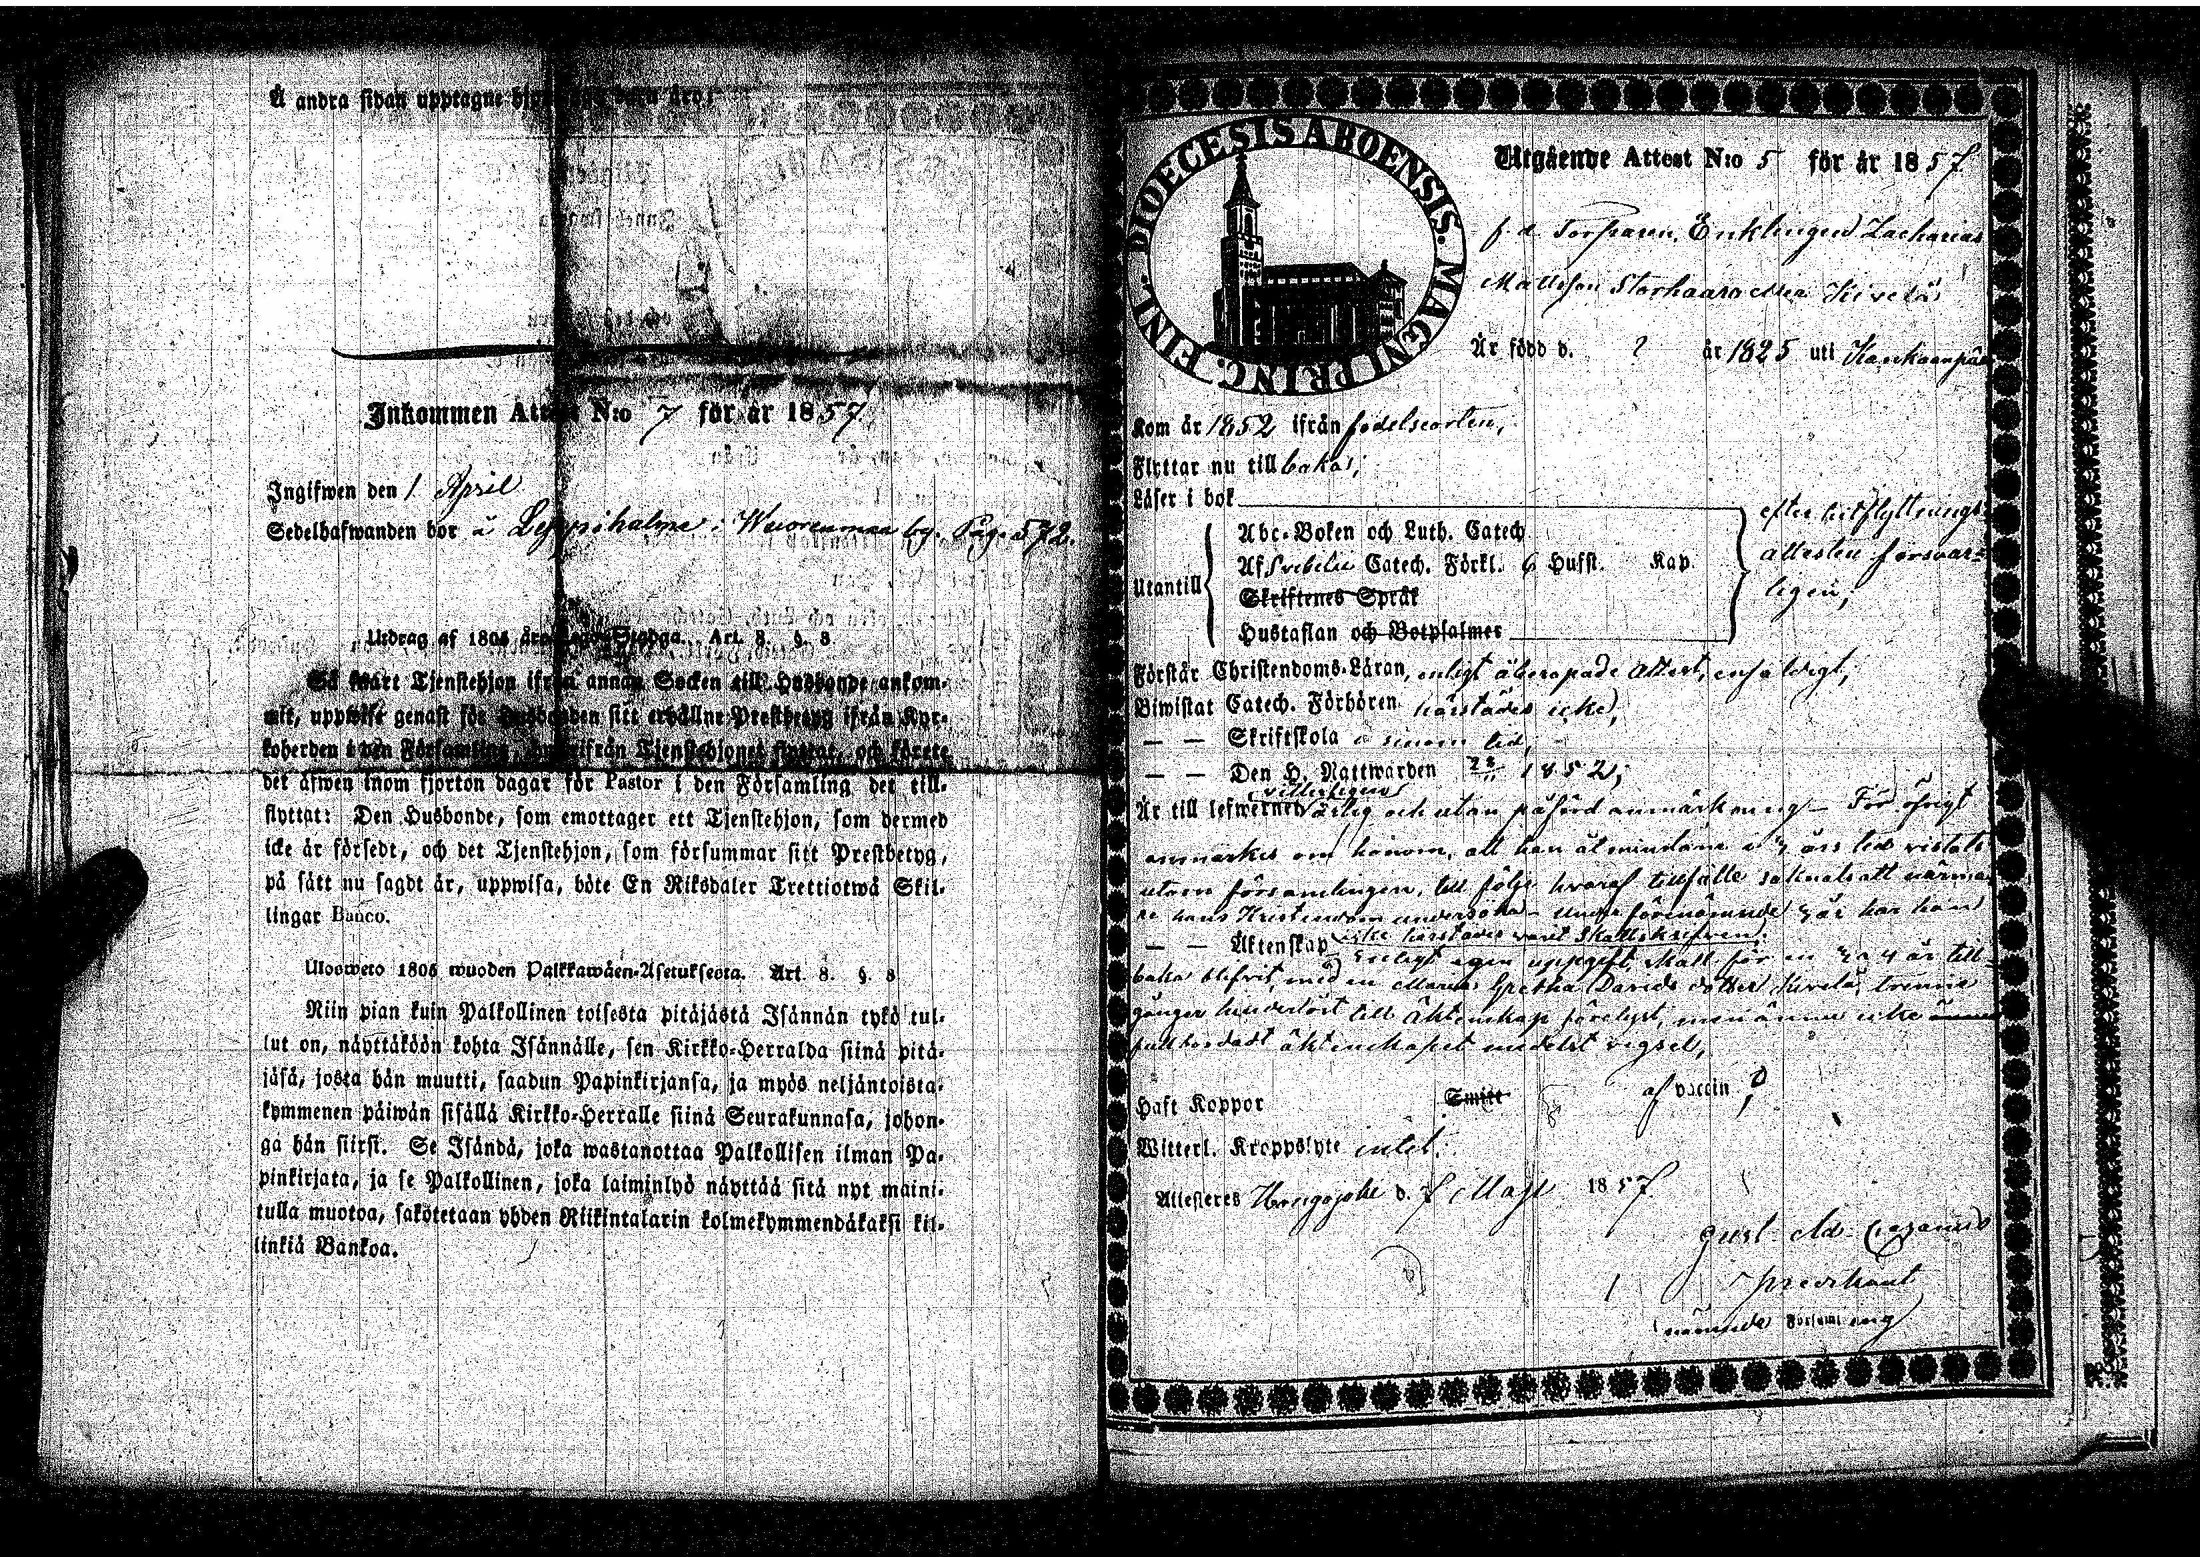 Å andra sidan upptagne
Inkommen Attest N:o 7 för år 1857
Ingifwen den 1 April
Sedelhafwanden bor å Leppiholma i Wuorenmaa by. Pag. 572.
Utdrag af 1805 års Lego-Stadga. Art. 8. §. 8
Så snart Tjenstehjon ifrån annan Socken till Husbonde ankom-
mit, uppwise genast för Husbonden sitt erhållne Prestbetyg ifrån Kyr-
koherden i den Församling, hwarifrån Tjenstehjonet flyttat, och förete
det äfwen inom fjorton dagar för Pastor i den Församling der till-
flyttat: Den Husbonde, som emottager ett Tjenstehjon, som dermed
icke är försedt, och det Tjenstehjon, som försummar sitt Prestbetyg,
på sätt nu sagdt är, uppwisa, böte En Riksdaler Trettiotwå Skil-
lingar Banco.
Ulosweto 1805 wuoden Palkkawäen-Asetuksesta. Art. 8. §. 8
Niin pian kuin Palkollinen toisesta pitäjästä Isännän tykö tul-
lut on, näyttäköön kohta Isännälle, sen Kirkko-Herralda siinä pitä-
jäsä, josta hän muutti, saadun Papinkirjansa, ja myös neljäntoista-
kymmenen päiwän sisällä Kirkko-Herralle siinä Seurakunnasa, johon-
ga hän siirsi. Se Isändä, joka wastanottaa Palkollisen ilman Pa-
pinkirjata, ja se Palkollinen, joka laiminlyö näyttää sitä nyt maini-
tulla muotoa, sakotetaan yhden Riikintalarin kolmekymmendäkaksi kil-
linkiä Bankoa.
DIOECESIS ABOENSIS. MAGNI PRINC. FINL.
Utgående Attest N:o 5 för år 1857
f. d. Torparen, Enklingen Zacharias
Mattsson Storhaaro Kivelä
Är född d. ? år 1825 uti Kankaanpää
Kom år 1852 ifrån födelseorten,
Flyttar nu tillbaka;
Läser i bok
Utantill
Abc-Boken och Luth. Catech
Af Svebelii Catech. Förkl. 6 Hufst. Kap.
Skriftenes Språk
Hustaflan och Botpsalmer
efter hitflyttnings-
attesten försvar-
ligen;
Förstår Christendoms-Läran, enligt åberopade Attest, enfaldigt,
Biwistat Catech. Förhören härstädes icke,
— — Skriftskola i sinom tid,
— — Den H. Nattwarden 1852;
Är till lefwernet ärlig och utan påförd anmärkning — För öfrigt
anmärkes om honom, att han åtminstone i 3 års tid vistats
utom församlingen, till följe hvaraf tillfälle saknats att närma-
re hans Kristendom undersöka — Under förenämnde 3 år har han
icke härstädes varit Skattskrifven.
— — Äktenskap Enligt egen uppgift, skall för en 3 a 4 år till-
baka blifvit, med en Maria Gretha Davids dotter Kivelä, trenne
gånger hinderlöst till äktenskap förelyst, men ännu icke
fullbordadt äktenskapet medelst vigsel,
Haft Koppor Smitt af vaccin,
Witterl. Kroppslyte intet.
Attesteres Hongojoki d. 7 Maji 1857
Gust. Ad. Cajanus
Predikant
i nämnde Församling